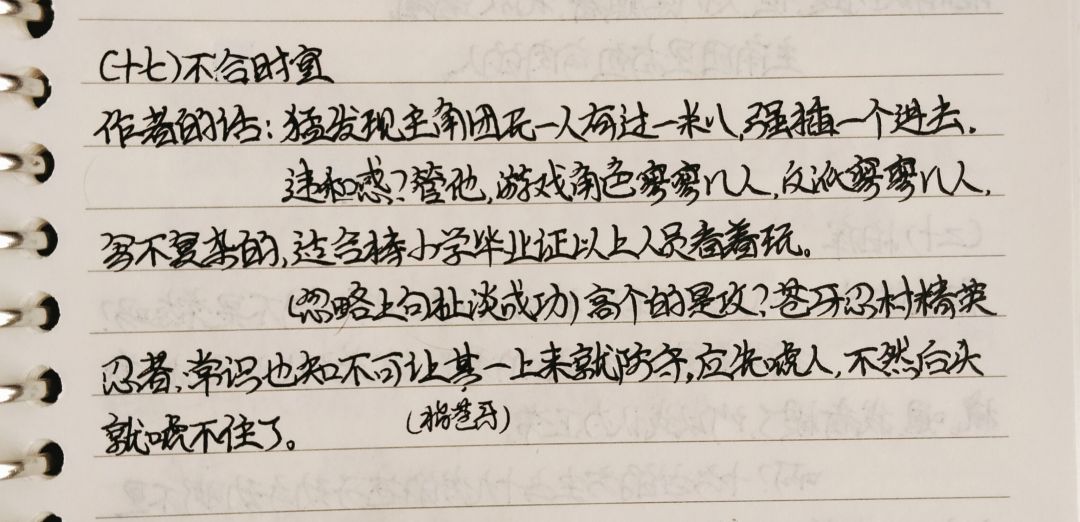 (十七)不合时宜
作者的话:猛发现主角团无一人有过一米八,强插一个进去。
违和感?管他,游戏角色寥寥几人,反派寥寥几人,
写不复杂的,适合持小学毕业证以上人员看着玩。
(忽略上句扯淡成功)高个的是攻?苍牙忍村精英
忍者,常识也知不可让其一上来就防守,应先唬人,不然后头
就唬不住了。
(指苍牙)